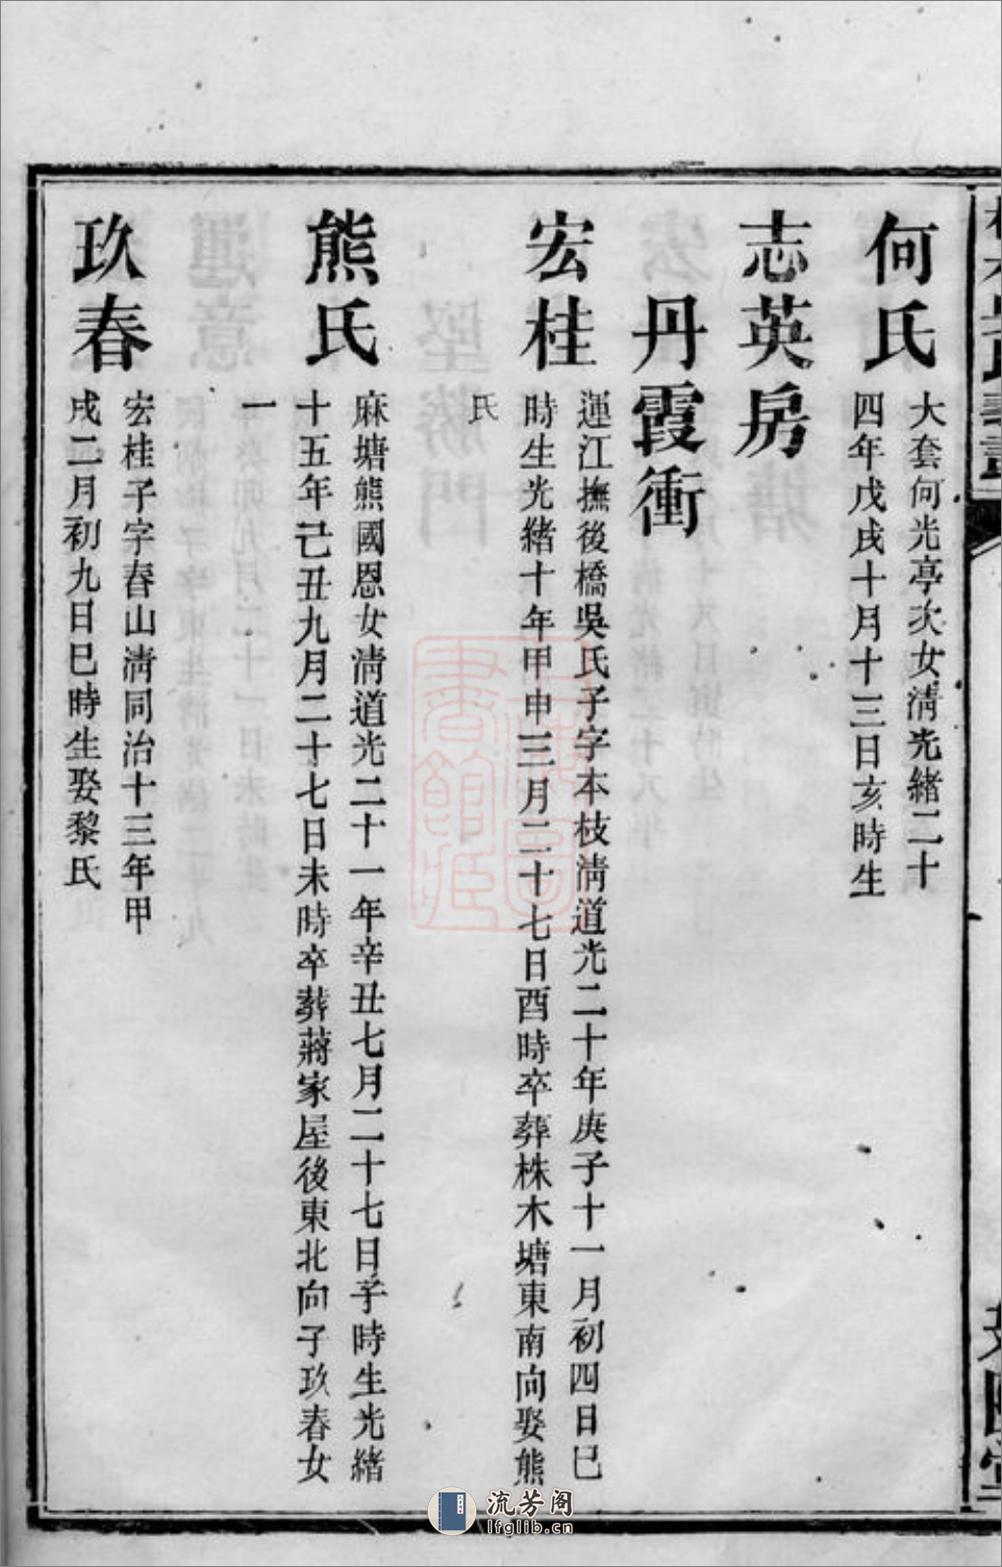 何氏
大套何光亭次女清光緒二十
四年戊戌十月十三日亥時生
志英房
丹霞衝
宏桂
運江撫後橋吳氏子字本枝清道光二十年庚子十一月初四日巳
時生光緒十年甲申三月二十七日酉時卒葬株木塘東南向娶熊
氏
熊氏
麻塘熊國恩女清道光二十一年辛丑七月二十七日子時生光緒
十五年己丑九月二十七日未時卒葬蔣家屋後東北向子玖春女
一
玖春
宏桂子字春山清同治十三年甲
戌二月初九日巳時生娶黎氏
流芳阁
lfglib.cn